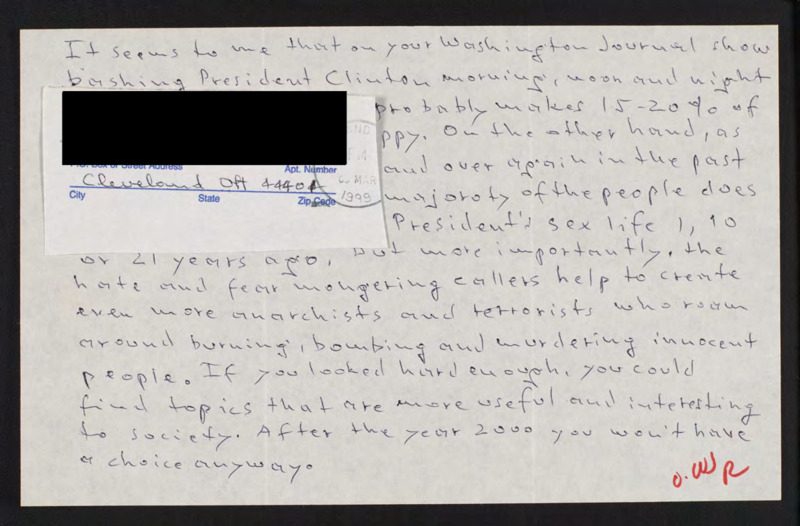 It seems to me that on your Washington Journal show
bashing President Clinton morning, noon and night
probably makes 15-20% of
ppy. On the other hand, as
and over again in the past
majoroty of the people does
President's sex life 1, 10
or 21 years ago. But more importantly, the
hate and fear mongering callers help to create
even more anarchists and terrorists who roam
around burning, bombing and murdering innocent
people. If you looked hard enough, you could
find topics that are more useful and interesting
to society. After the year 2000 you won't have
a choice anyway.
P.O. Box or Street Address Apt. Number
Cleveland OH
City State Zip Code
MAR
1999